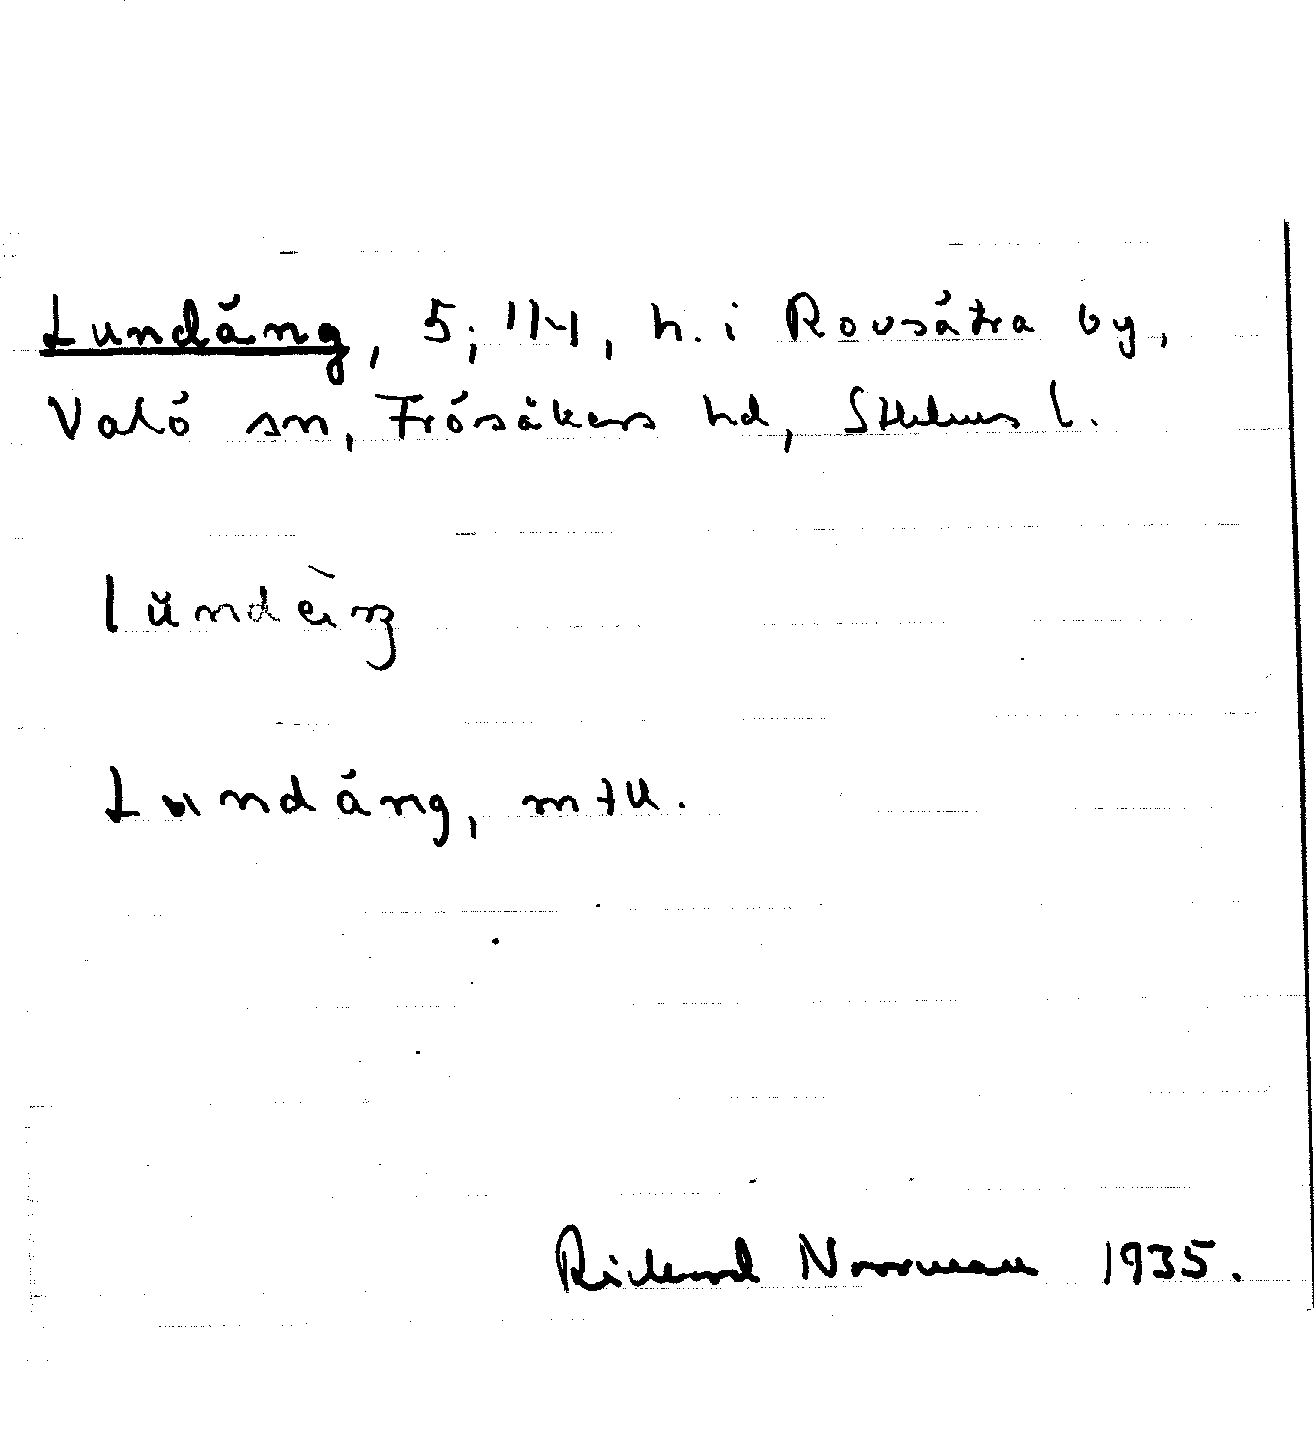 Lundäng, 5; 1/4, h. i Rovsätra by,
Valö sn, Frösåkers hd, Sthlms l.
Lundäng, mtu.
Rickard Norrman 1935.